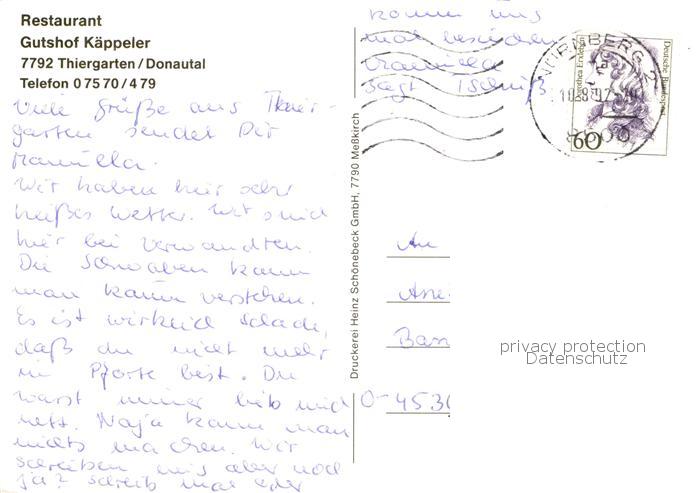 Restaurant
Gutshof Käppeler
7792 Thiergarten / Donautal
Telefon 0 75 70 / 4 79
Viele Grüße aus Thier-
garten sendet Dir
Manuela.
Wir haben hier sehr
heißes Wetter. Wir sind
hier bei Verwandten.
Die Schwaben kann
man kaum verstehen.
Es ist wirklich schade,
daß du nicht mehr
in Pforte bist. Du
warst immer lieb und
nett. Naja kann man
nichts machen. Wir
schreiben uns aber noch
ja? Schreib mal oder
komm uns
mal besuchen
Manuela
sagt Tschüß
Druckerei Heinz Schönebeck GmbH, 7790 Meßkirch
NÜRNBERG 2
Deutsche Bundespost
60
An
O-4530
privacy protection
Datenschutz